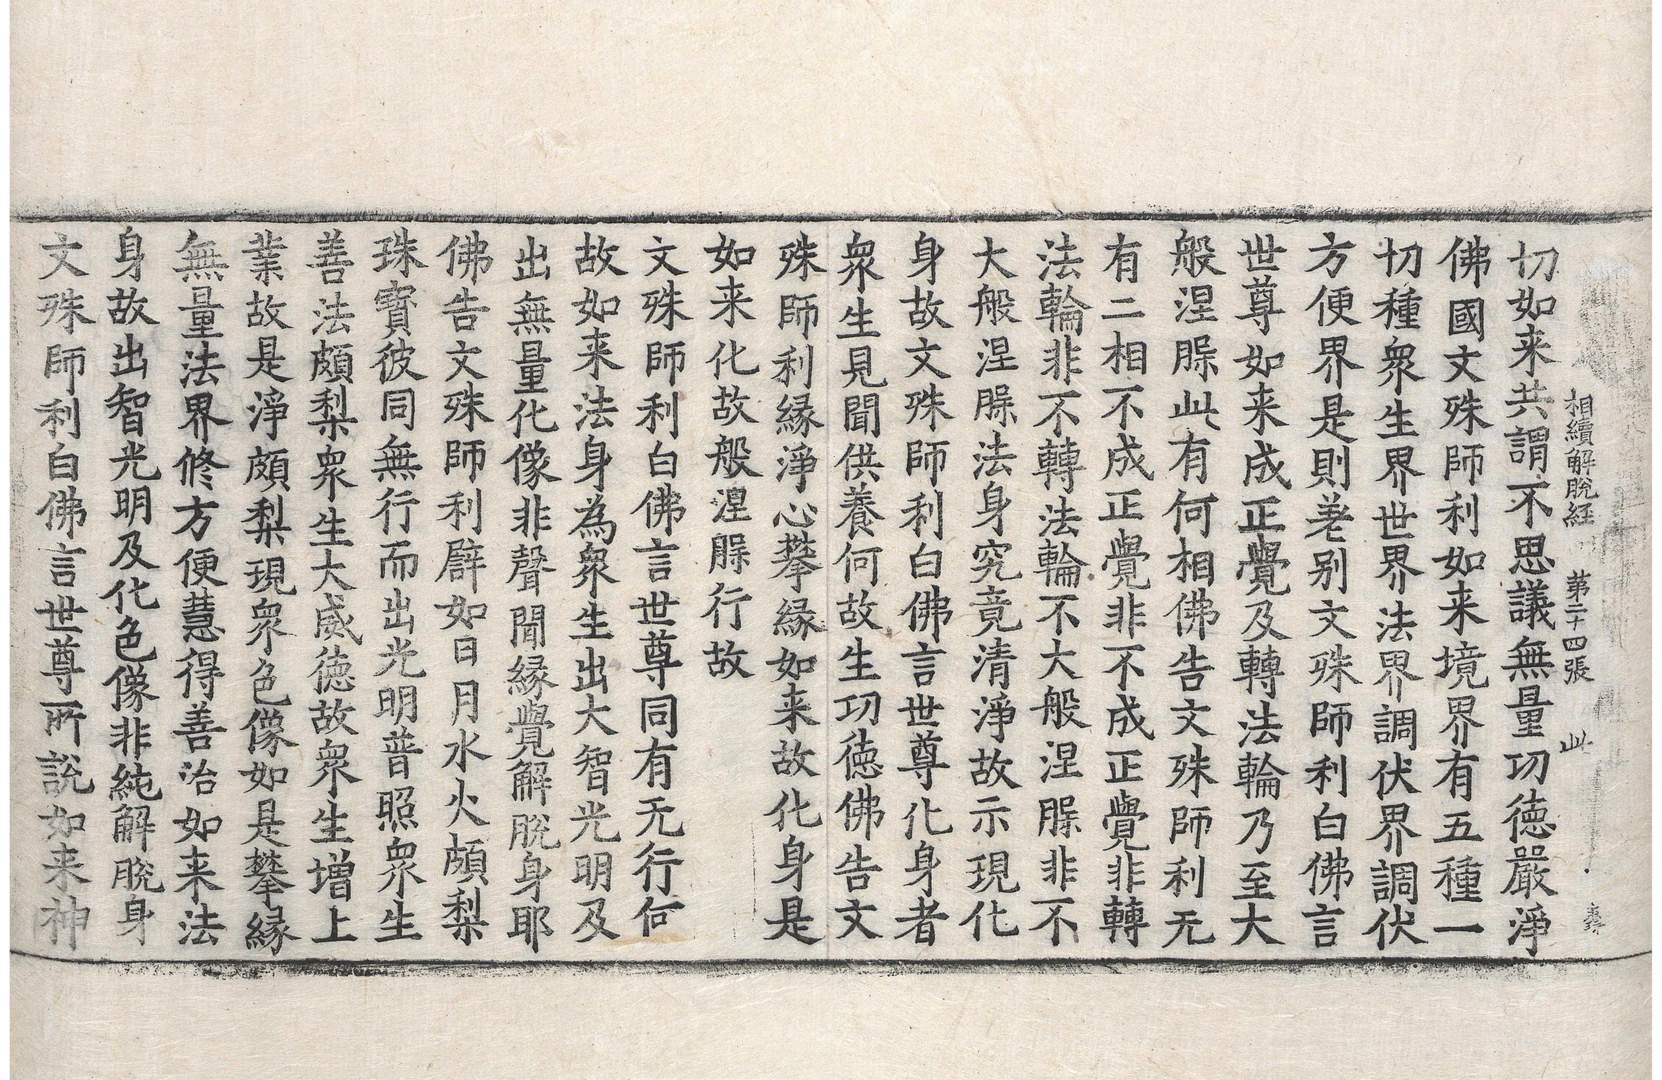 相續解脫経 第二十四張 此
切如来共謂不思議無量功徳嚴淨
佛國文殊師利如来境界有五種一
切種衆生界世界法界調伏界調伏
方便界是則差别文殊師利白佛言
世尊如来成正覺及轉法輪乃至大
般涅脲此有何相佛告文殊師利无
有二相不成正覺非不成正覺非轉
法輪非不轉法輪不大般涅脲非不
大般涅脲法身究竟清淨故示現化
身故文殊師利白佛言世尊化身者
衆生見聞供養何故生功徳佛告文
殊師利縁淨心攀縁如来故化身是
如来化故般涅脲行故
文殊師利白佛言世尊同有无行何
故如来法身為衆生出大智光明及
出無量化像非聲聞縁覺解脫身耶
佛告文殊師利譬如日月水火頗梨
珠寳彼同無行而出光明普照衆生
善法頗梨衆生大威徳故衆生増上
業故是淨頗梨現衆色像如是攀縁
無量法界修方便慧得善治如来法
身故出智光明及化色像非純解脫身
文殊師利白佛言世尊所說如来神